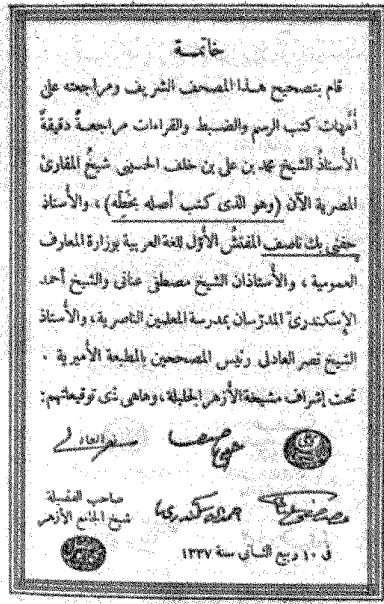 خاتمة
قام بتصحيح هذا المصحف الشريف ومراجعته على
أمهات كتب الرسم والضبط والقراءات مراجعةً دقيقةً
الأستاذُ الشيخ محمد بن على بن خلف الحسينى شيخُ المقارئ
المصرية الآن (وهو الذى كتب أصله بخَطِّه) ، والأستاذ
حفنى بك ناصف المفتش الأوّل للغة العربية بوزارة المعارف
العمومية ، والأستاذان الشيخ مصطفى عنانى والشيخ أحمد
الإسكندرىّ المدرّسان بمدرسة المعلمين الناصرية ، والأستاذ
الشيخ نصر العادلى رئيس المصححين بالمطبعة الأميرية .
تحت إشراف مشيخة الأزهر الجليلة ، وهاهى ذى توقيعاتهم :
نصر العادلى
صاحب الفضيلة
شيخ الجامع الأزهر
فى ١٠ ربيع الثانى سنة ١٣٣٧